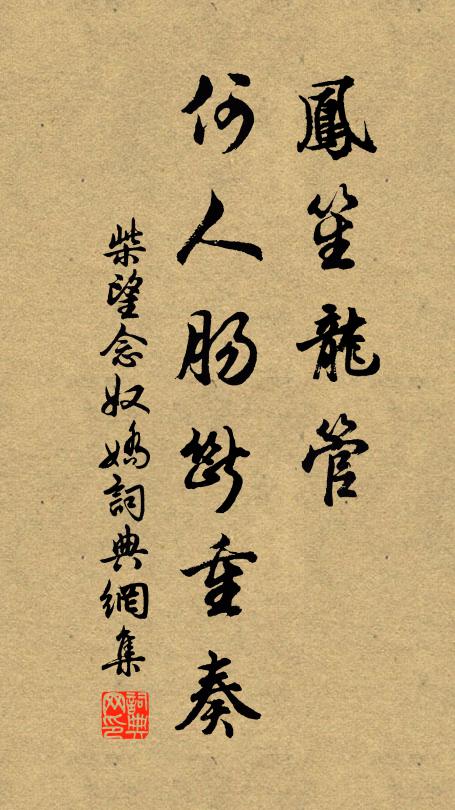 鳳笙龍管
何人腸斷重奏
柴望念奴嬌詞典網集
詞典网印